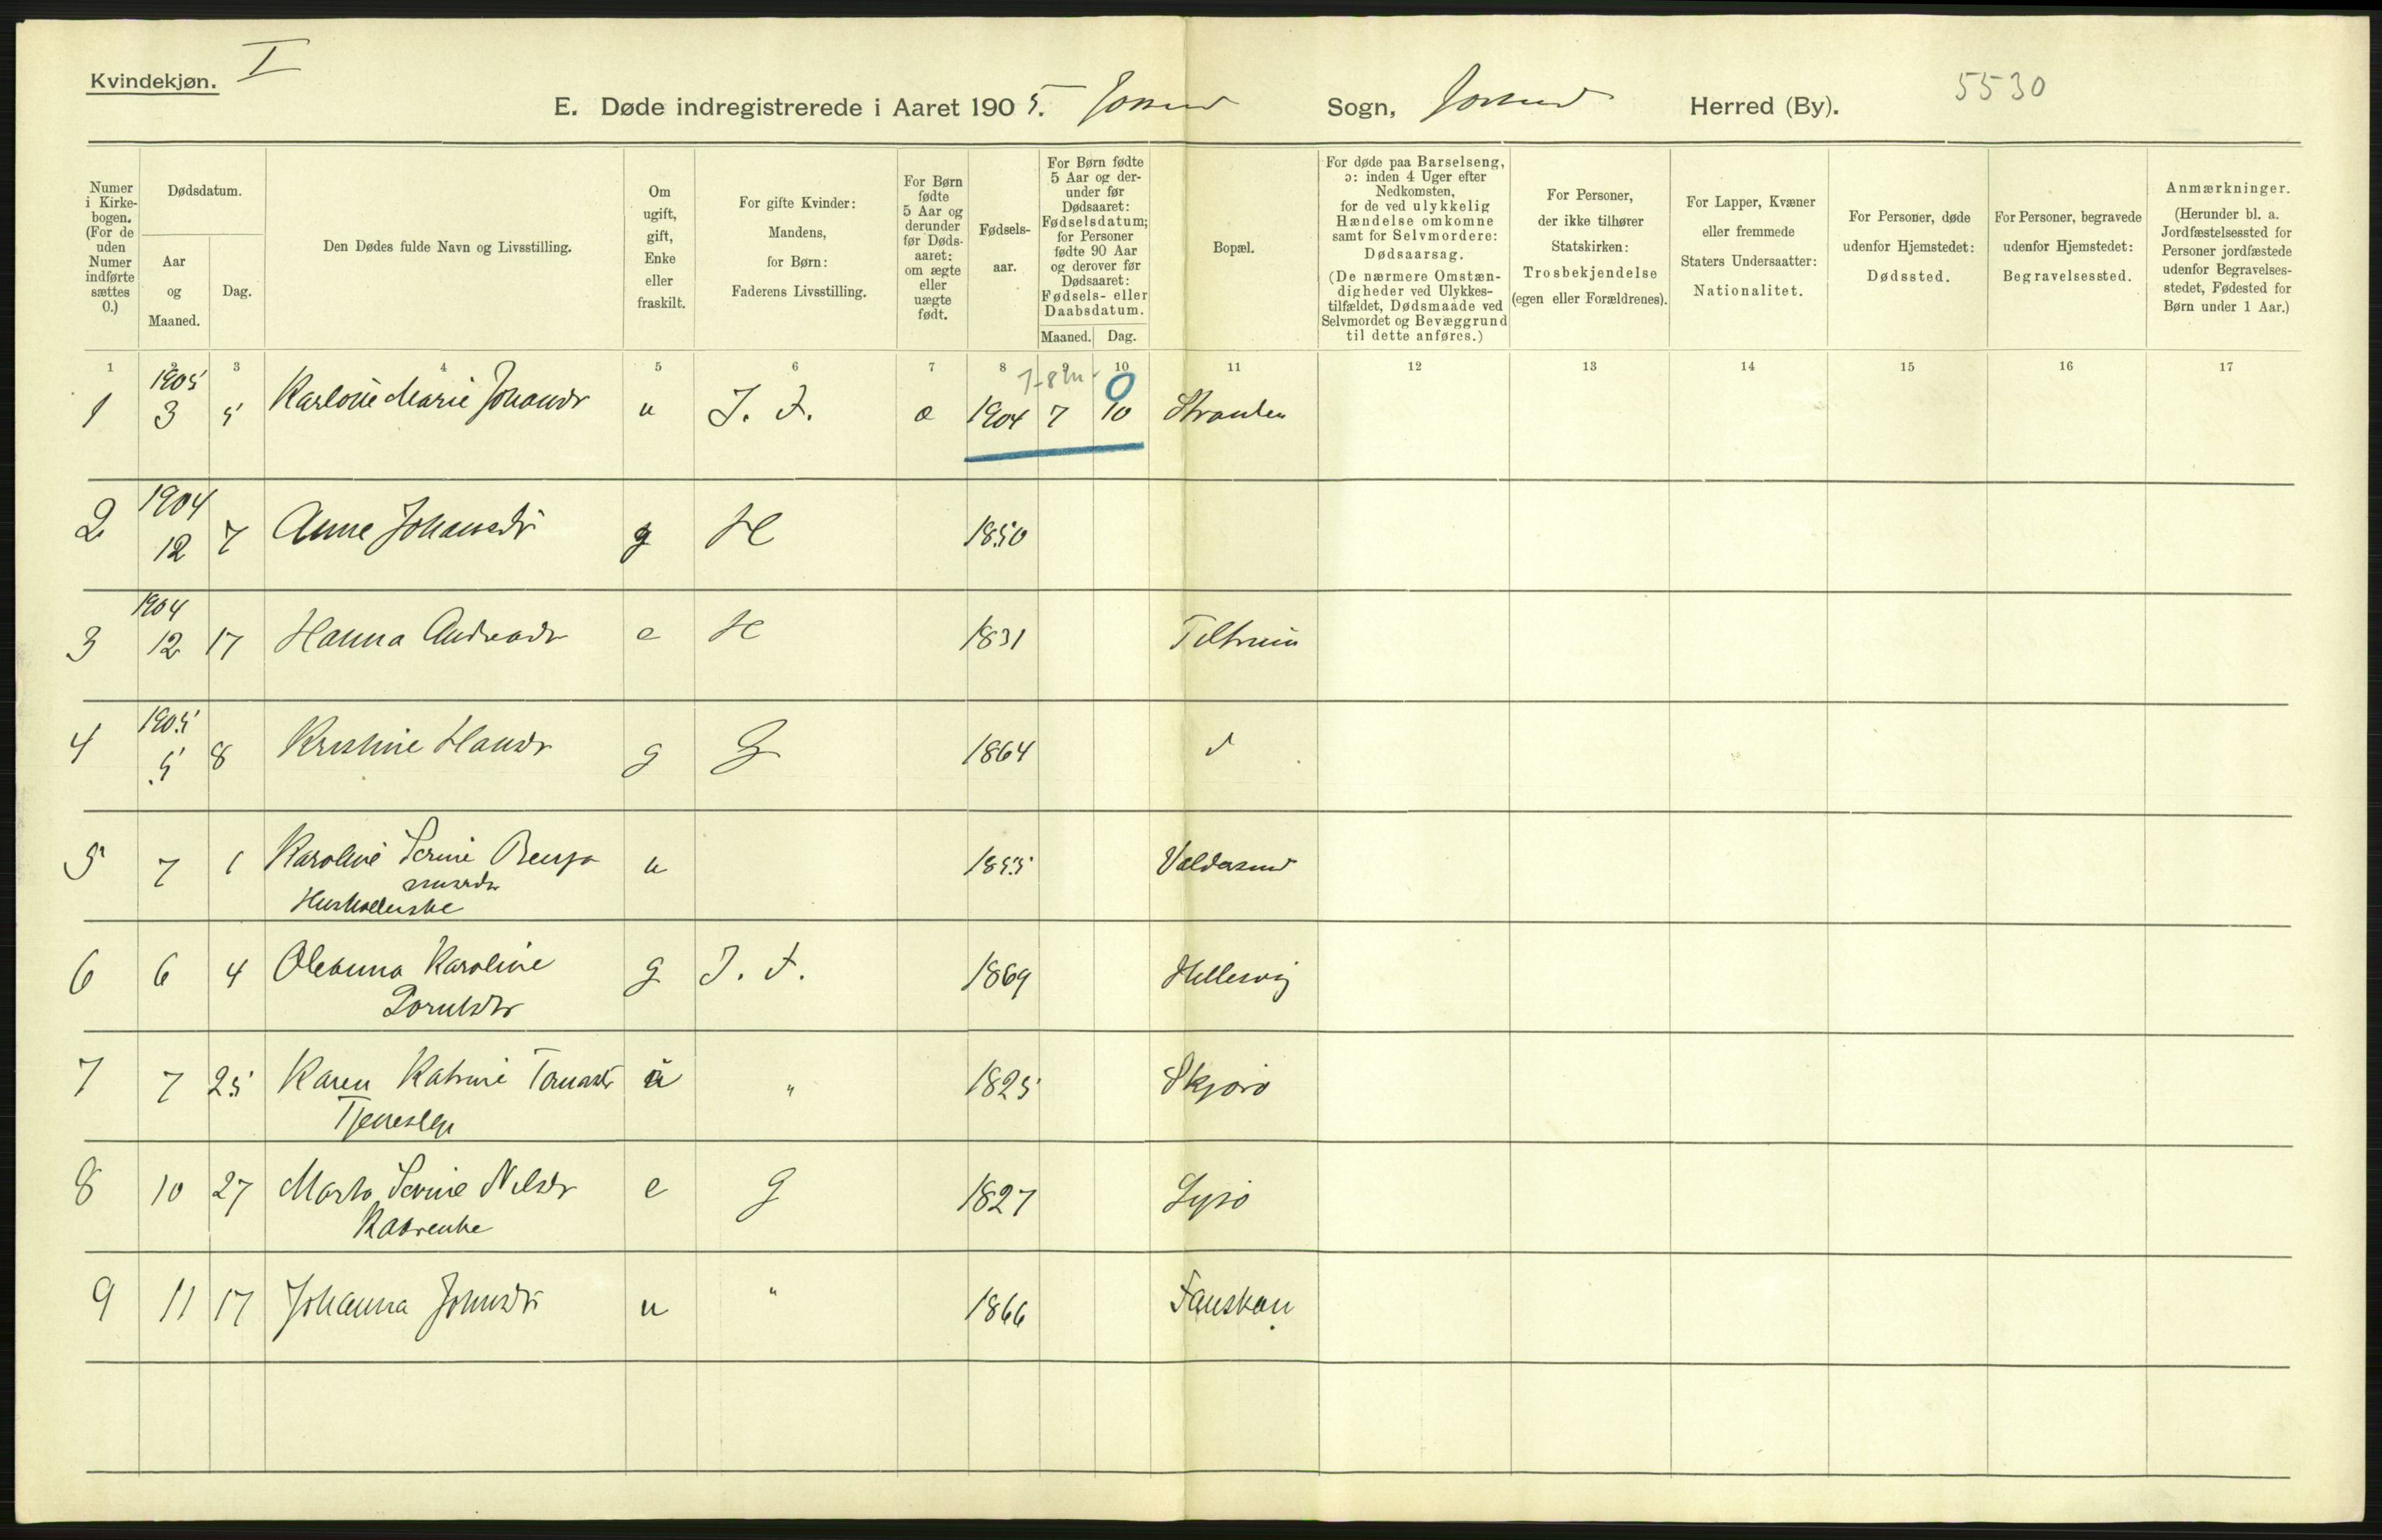 Kvindekjøn. I
E. Døde indregistrerede i Aaret 1905. Jøssund Sogn, Jøssund Herred (By). 5530
Numer i Kirkebogen. (For de uden Numer indførte sættes 0.)
Dødsdatum.
Aar og Maaned.
Dag.
Den Dødes fulde Navn og Livsstilling.
Om ugift, gift, Enke eller fraskilt.
For gifte Kvinder: Mandens, for Børn: Faderens Livsstilling.
For Børn fødte 5 Aar og derunder før Dødsaaret: om ægte eller uægte født.
Fødselsaar.
For Børn fødte 5 Aar og derunder før Dødsaaret: Fødselsdatum; for Personer fødte 90 Aar og derover før Dødsaaret: Fødsels- eller Daabsdatum.
Maaned. Dag.
Bopæl.
For døde paa Barselseng, ɔ: inden 4 Uger efter Nedkomsten, for de ved ulykkelig Hændelse omkomne samt for Selvmordere: Dødsaarsag. (De nærmere Omstændigheder ved Ulykkestilfældet, Dødsmaade ved Selvmordet og Bevæggrund til dette anføres.)
For Personer, der ikke tilhører Statskirken: Trosbekjendelse (egen eller Forældrenes).
For Lapper, Kvæner eller fremmede Staters Undersaatter: Nationalitet.
For Personer, døde udenfor Hjemstedet: Dødssted.
For Personer, begravede udenfor Hjemstedet: Begravelsessted.
Anmærkninger. (Herunder bl. a. Jordfæstelsessted for Personer jordfæstede udenfor Begravelsesstedet, Fødested for Børn under 1 Aar.)
1 2 3 4 5 6 7 8 9 10 11 12 13 14 15 16 17
7-8 m 0
1 1905 3 5 Marie Johansdr u J. F. æ 1904 7 10 Stranden
2 1904 12 7 Anne Johansdr g H 1850
3 1904 12 17 Hanna Andreasdr e H 1831 Teltrum
4 1905 5 8 Kristine Hansdr g G 1864
5 7 1 Karoline Serine Benja u 1855 Valdersund
minsdr
Husholderske
6 6 4 Oleanna Karoline g J. F. 1869 Hellesvig
7 7 25 Karen Katrine Tomasdr u " 1825 Skjørø
8 10 27 Marta Serine Nilsdr e G 1827 Lysø
Kaarenke
9 11 17 Johanna Johnsdr u " 1866 Fauskan